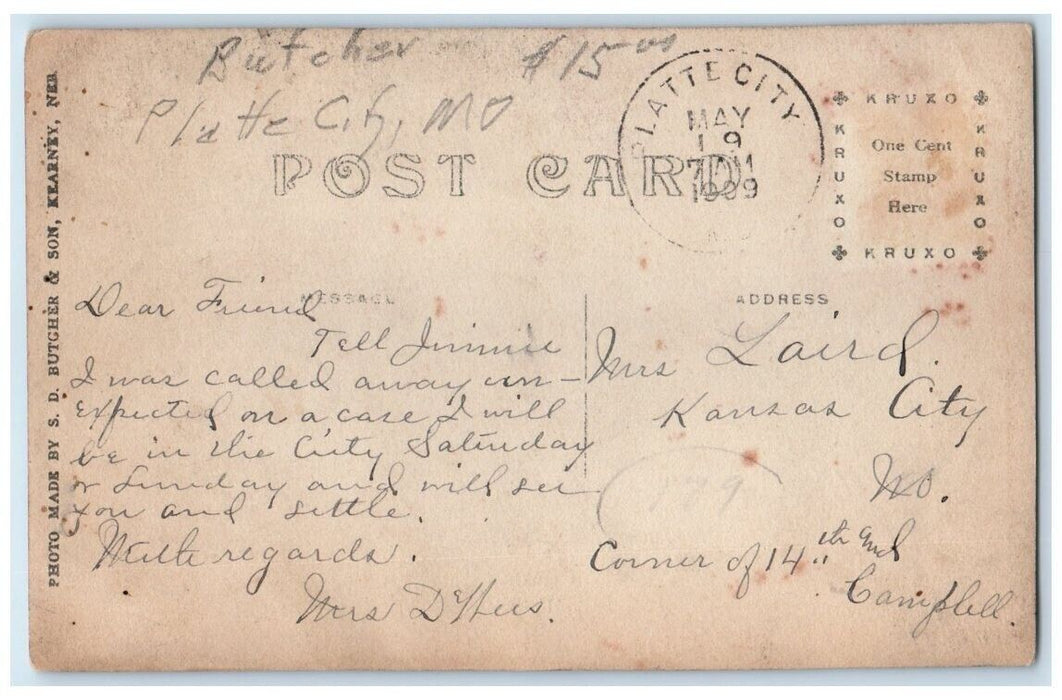 Butcher $15.00
Platte City, MO
PLATTE CITY
MAY
19
7 AM
1909
POST CARD
KRUXO
KRUXO
One Cent
Stamp
Here
KRUXO
KRUXO
PHOTO MADE BY S. D. BUTCHER & SON, KEARNEY, NEB
MESSAGE
Dear Friend
Tell Jimmie
I was called away un-
expected on a case I will
be in the City Saturday
or Sunday and will see
you and settle.
With regards.
Mrs
ADDRESS
Mrs Laird.
Kansas City
Mo.
Corner of 14th and
Campbell.